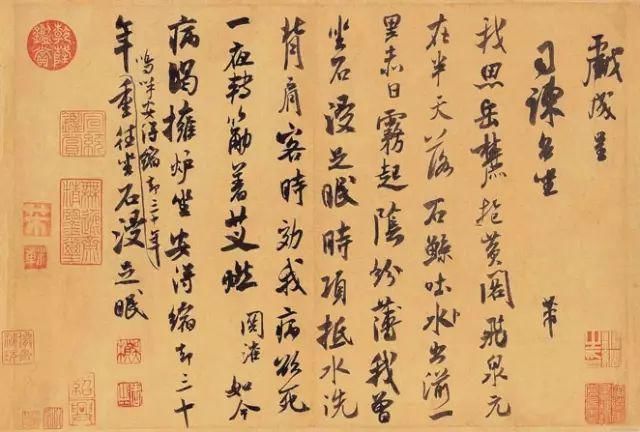 戲成呈
司諫台坐
芾
我思岳麓抱黃閣飛泉元
在半天落石鯨吐水出湔一
里赤日霧起蔭紛薄我曾
坐石浸足眠時項抵水洗
背肩客時効我病欲死
一夜轉筋著艾燃 關灌 如今
病渴擁炉坐安得縮却三十
嗚呼安得縮却三十年
年重往坐石浸足眠